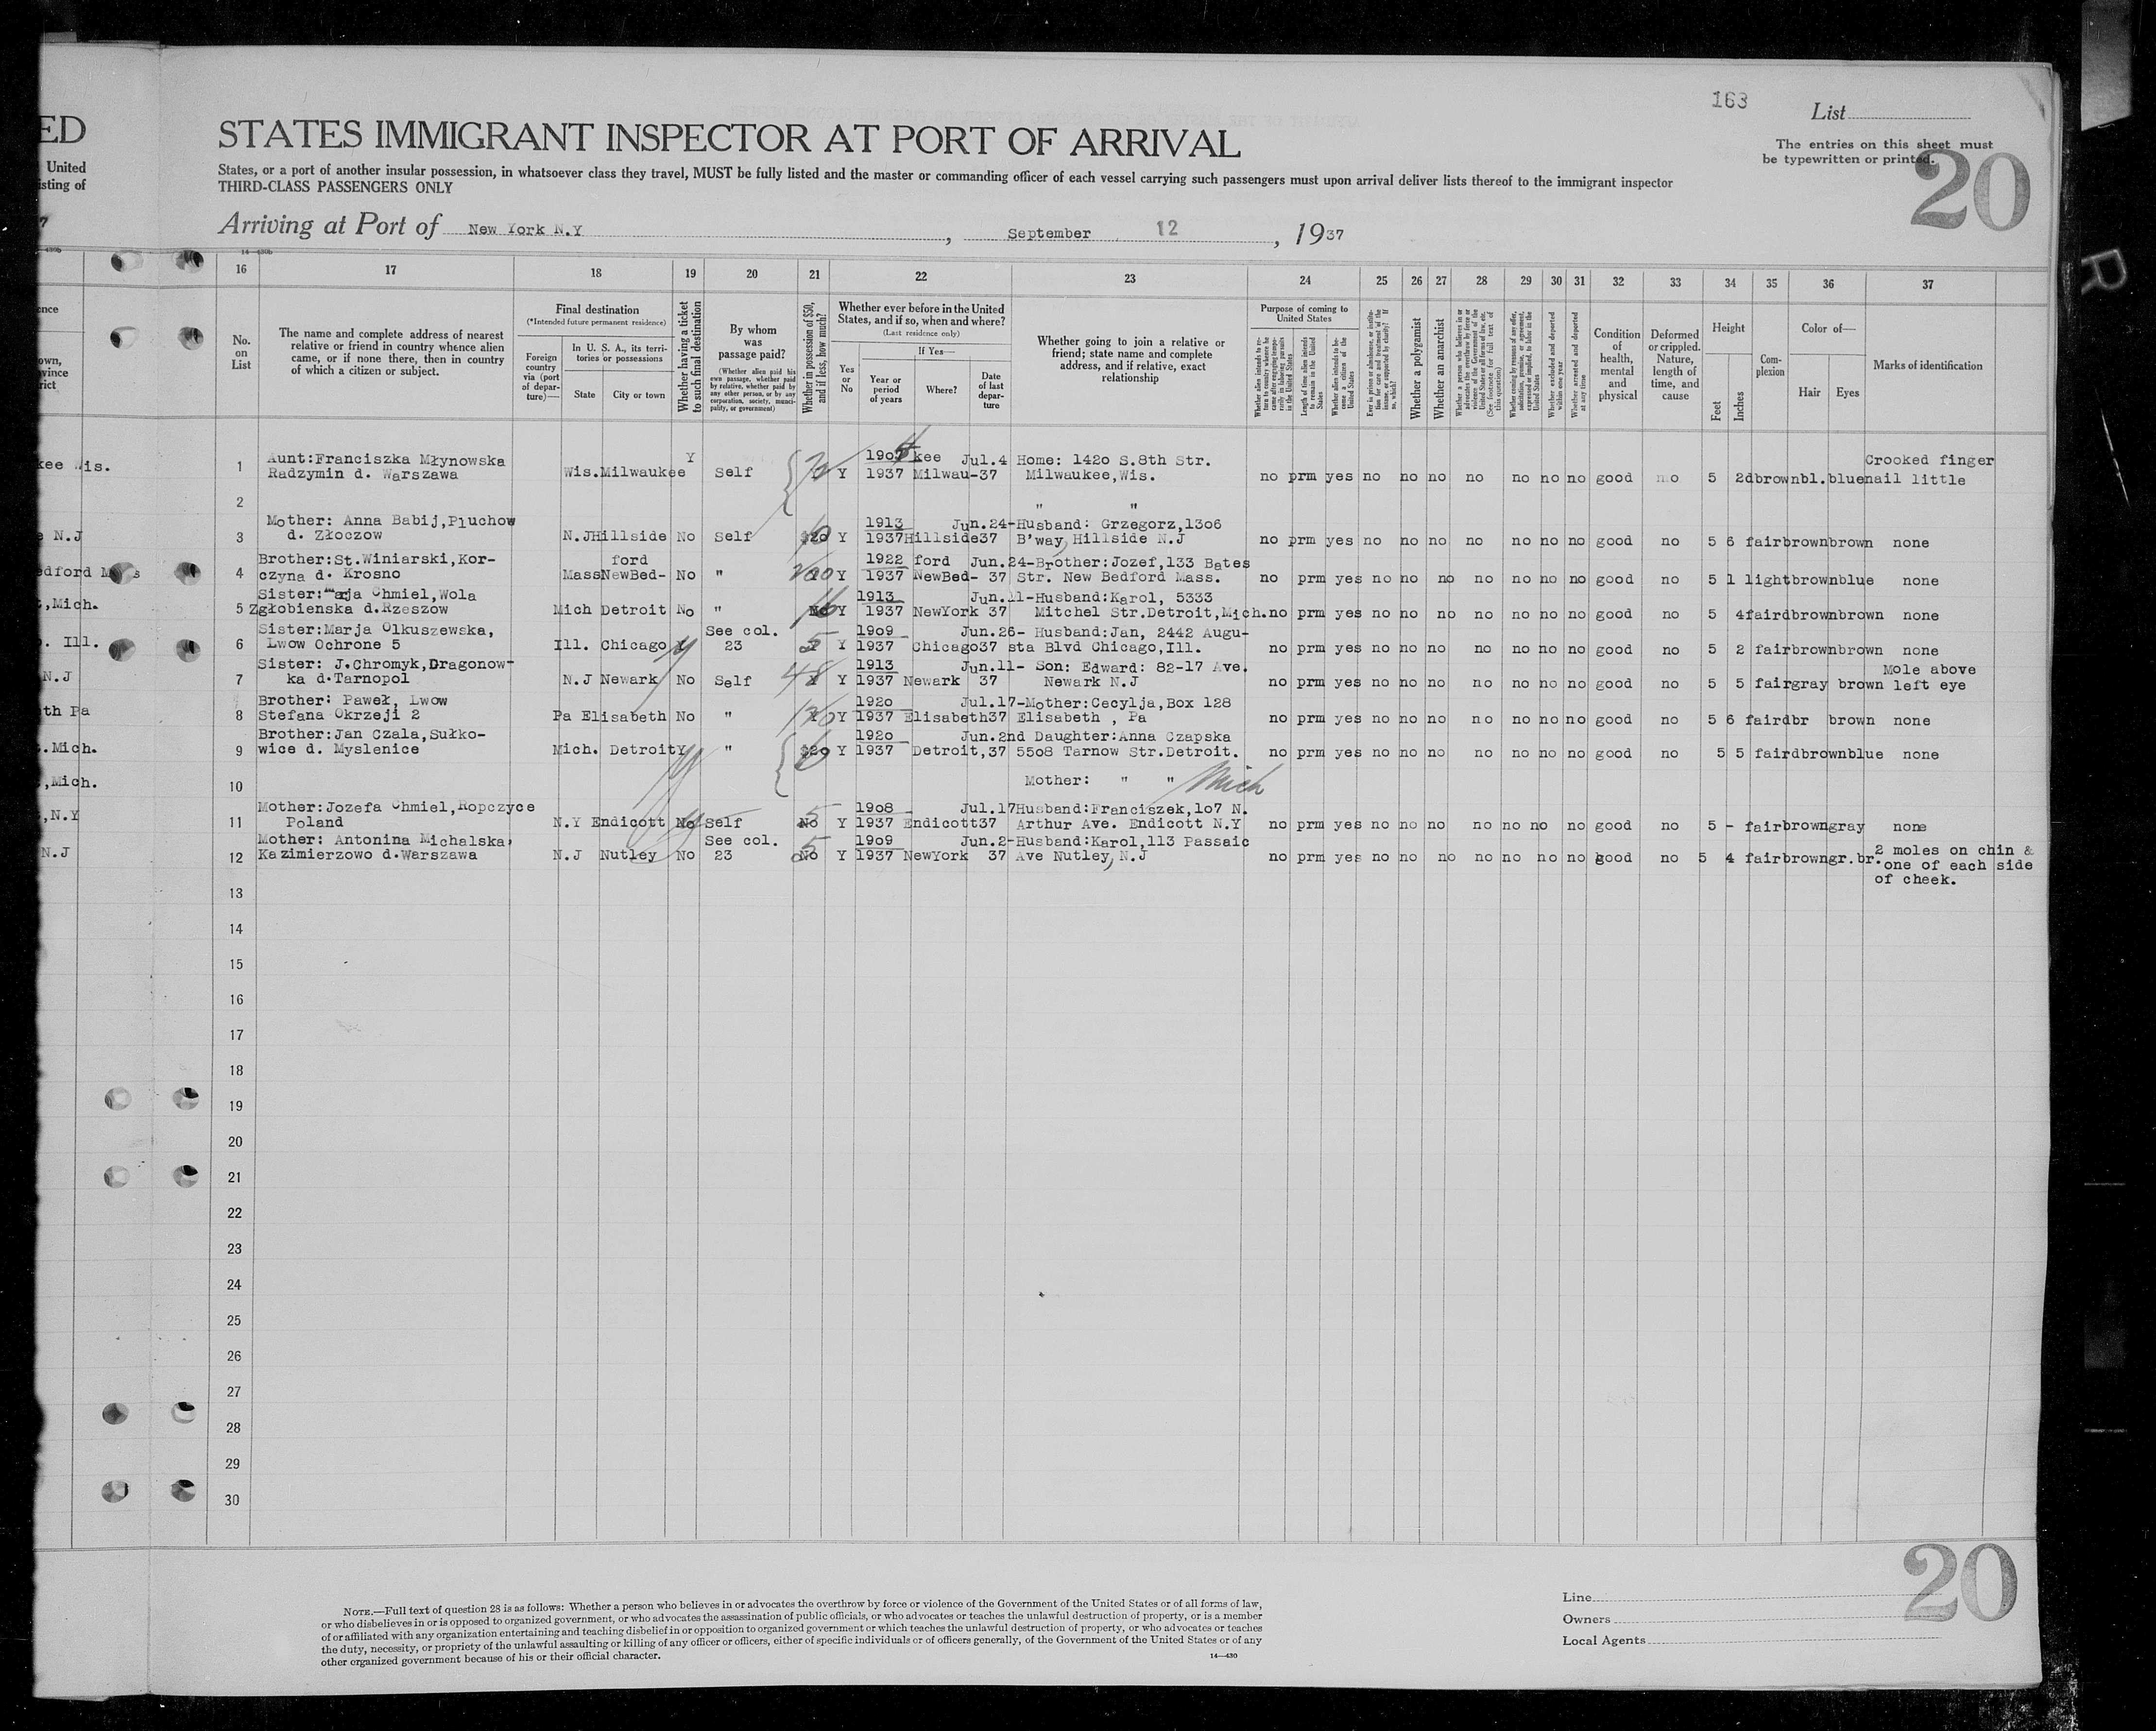 163
List
ED
STATES IMMIGRANT INSPECTOR AT PORT OF ARRIVAL
The entries on this sheet must
be typewritten or printed.
20
United
isting of
States, or a port of another insular possession, in whatsoever class they travel, MUST be fully listed and the master or commanding officer of each vessel carrying such passengers must upon arrival deliver lists thereof to the immigrant inspector
THIRD-CLASS PASSENGERS ONLY
7
Arriving at Port of New York N.Y , September 12 , 1937
16 17 18 19 20 21 22 23 24 25 26 27 28 29 30 31 32 33 34 35 36 37
No. on List
The name and complete address of nearest relative or friend in country whence alien came, or if none there, then in country of which a citizen or subject.
Final destination
(*Intended future permanent residence)
Foreign country via (port of departure)—
In U. S. A., its territories or possessions
State
City or town
Whether having a ticket to such final destination
By whom was passage paid?
(Whether alien paid his own passage, whether paid by relative, whether paid by any other person, or by any corporation, society, municipality, or government)
Whether in possession of $50, and if less, how much?
Whether ever before in the United States, and if so, when and where?
(Last residence only)
Yes or No
If Yes—
Year or period of years
Where?
Date of last departure
Whether going to join a relative or friend; state name and complete address, and if relative, exact relationship
Purpose of coming to United States
Length of time alien intends to remain in the United States
Whether alien intends to become a citizen of the United States
Whether a polygamist
Whether an anarchist
(See footnote for full text of this question)
Whether excluded and deported within one year
Whether arrested and deported at any time
Condition of health, mental and physical
Deformed or crippled. Nature, length of time, and cause
Height
Feet
Inches
Complexion
Color of—
Hair
Eyes
Marks of identification
kee Wis.
1 Aunt:Franciszka Młynowska Y 1904 kee Jul.4 Home: 1420 S.8th Str. Crooked finger
Radzymin d. Warszawa Wis. Milwaukee Self Y 1937 Milwau-37 Milwaukee,Wis. no prm yes no no no no no no no good no 5 2 dbrown bl. blue nail little
2 " "
Mother: Anna Babij,Pluchow 1913 Jun.24-Husband: Grzegorz,1306
N.J
3 d. Złoczow N.J Hillside No Self $20 Y 1937 Hillside 37 B'way, Hillside N.J no prm yes no no no no no no no good no 5 6 fair brown brown none
Brother:St.Winiarski,Kor- ford 1922 ford Jun.24-Brother:Jozef,133 Bates
edford Mass
4 czyna d. Krosno Mass NewBed- No " Y 1937 NewBed- 37 Str. New Bedford Mass. no prm yes no no no no no no no good no 5 1 light brown blue none
Sister: Marja Chmiel,Wola 1913 Jun.11-Husband:Karol, 5333
,Mich.
5 Zgłobienska d.Rzeszow Mich Detroit No " No Y 1937 NewYork 37 Mitchel Str.Detroit,Mich. no prm yes no no no no no no no good no 5 4 fair dbrown brown none
Sister:Marja Olkuszewska, See col. 1909 Jun.26- Husband:Jan, 2442 Augu-
. Ill.
6 Lwow Ochrone 5 Ill. Chicago Y 23 5 Y 1937 Chicago 37 sta Blvd Chicago,Ill. no prm yes no no no no no no no good no 5 2 fair brown brown none
Sister: J.Chromyk,Dragonow- 1913 Jun.11- Son: Edward: 82-17 Ave. Mole above
N.J
7 ka d.Tarnopol N.J Newark No Self 48 Y 1937 Newark 37 Newark N.J no prm yes no no no no no no no good no 5 5 fair gray brown left eye
Brother: Paweł, Lwow 1920 Jul.17-Mother:Cecylja,Box 128
th Pa
8 Stefana Okrzeji 2 Pa Elisabeth No " Y 1937 Elisabeth 37 Elisabeth , Pa no prm yes no no no no no no no good no 5 6 fair dbr brown none
Brother:Jan Czala,Sułko- 1920 Jun.2nd Daughter:Anna Czapska
.Mich.
9 wice d. Myslenice Mich. Detroit Y " $20 Y 1937 Detroit, 37 5508 Tarnow Str.Detroit. no prm yes no no no no no no no good no 5 5 fair dbrown blue none
,Mich.
10 Mother: " " Mich
Mother:Jozefa Chmiel,Ropczyce 1908 Jul.17 Husband:Franciszek,107 N.
,N.Y
11 Poland N.Y Endicott No Self 5 No Y 1937 Endicott 37 Arthur Ave. Endicott N.Y no prm yes no no no no no no no good no 5 - fair brown gray none
Mother: Antonina Michalska, See col. 1909 Jun.2-Husband:Karol,113 Passaic
N.J
12 Kazimierzowo d.Warszawa N.J Nutley No 23 5 No Y 1937 NewYork 37 Ave Nutley, N.J no prm yes no no no no no no no good no 5 4 fair brown gr.br. 2 moles on chin &
one of each side
of cheek.
13
14
15
16
17
18
19
20
21
22
23
24
25
26
27
28
29
30
20
NOTE.—Full text of question 28 is as follows: Whether a person who believes in or advocates the overthrow by force or violence of the Government of the United States or of all forms of law,
or who disbelieves in or is opposed to organized government, or who advocates the assassination of public officials, or who advocates or teaches the unlawful destruction of property, or is a member
of or affiliated with any organization entertaining and teaching disbelief in or opposition to organized government or which teaches the unlawful destruction of property, or who advocates or teaches
the duty, necessity, or propriety of the unlawful assaulting or killing of any officer or officers, either of specific individuals or of officers generally, of the Government of the United States or of any
other organized government because of his or their official character.
14—430
Line
Owners
Local Agents